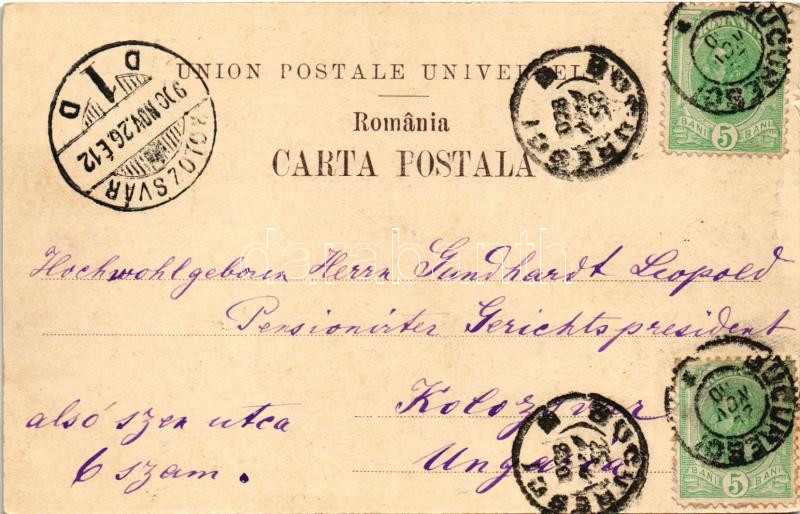 UNION POSTALE UNIVERSELLE
România
CARTA POSTALA
KOLOZSVÁR
900 NOV. 26. É. 12
D 1 D
BUCURESCI
BUCURESCI
BANI 5 BANI
darabanth
Hochwohlgeboren Herrn Gundhardt Leopold
Pensionirter Gerichtspresident
alsó szen utca
Kolozsvar
6 szam.
Ungaria
BUCURESCI
BUCURESCI
BANI 5 BANI